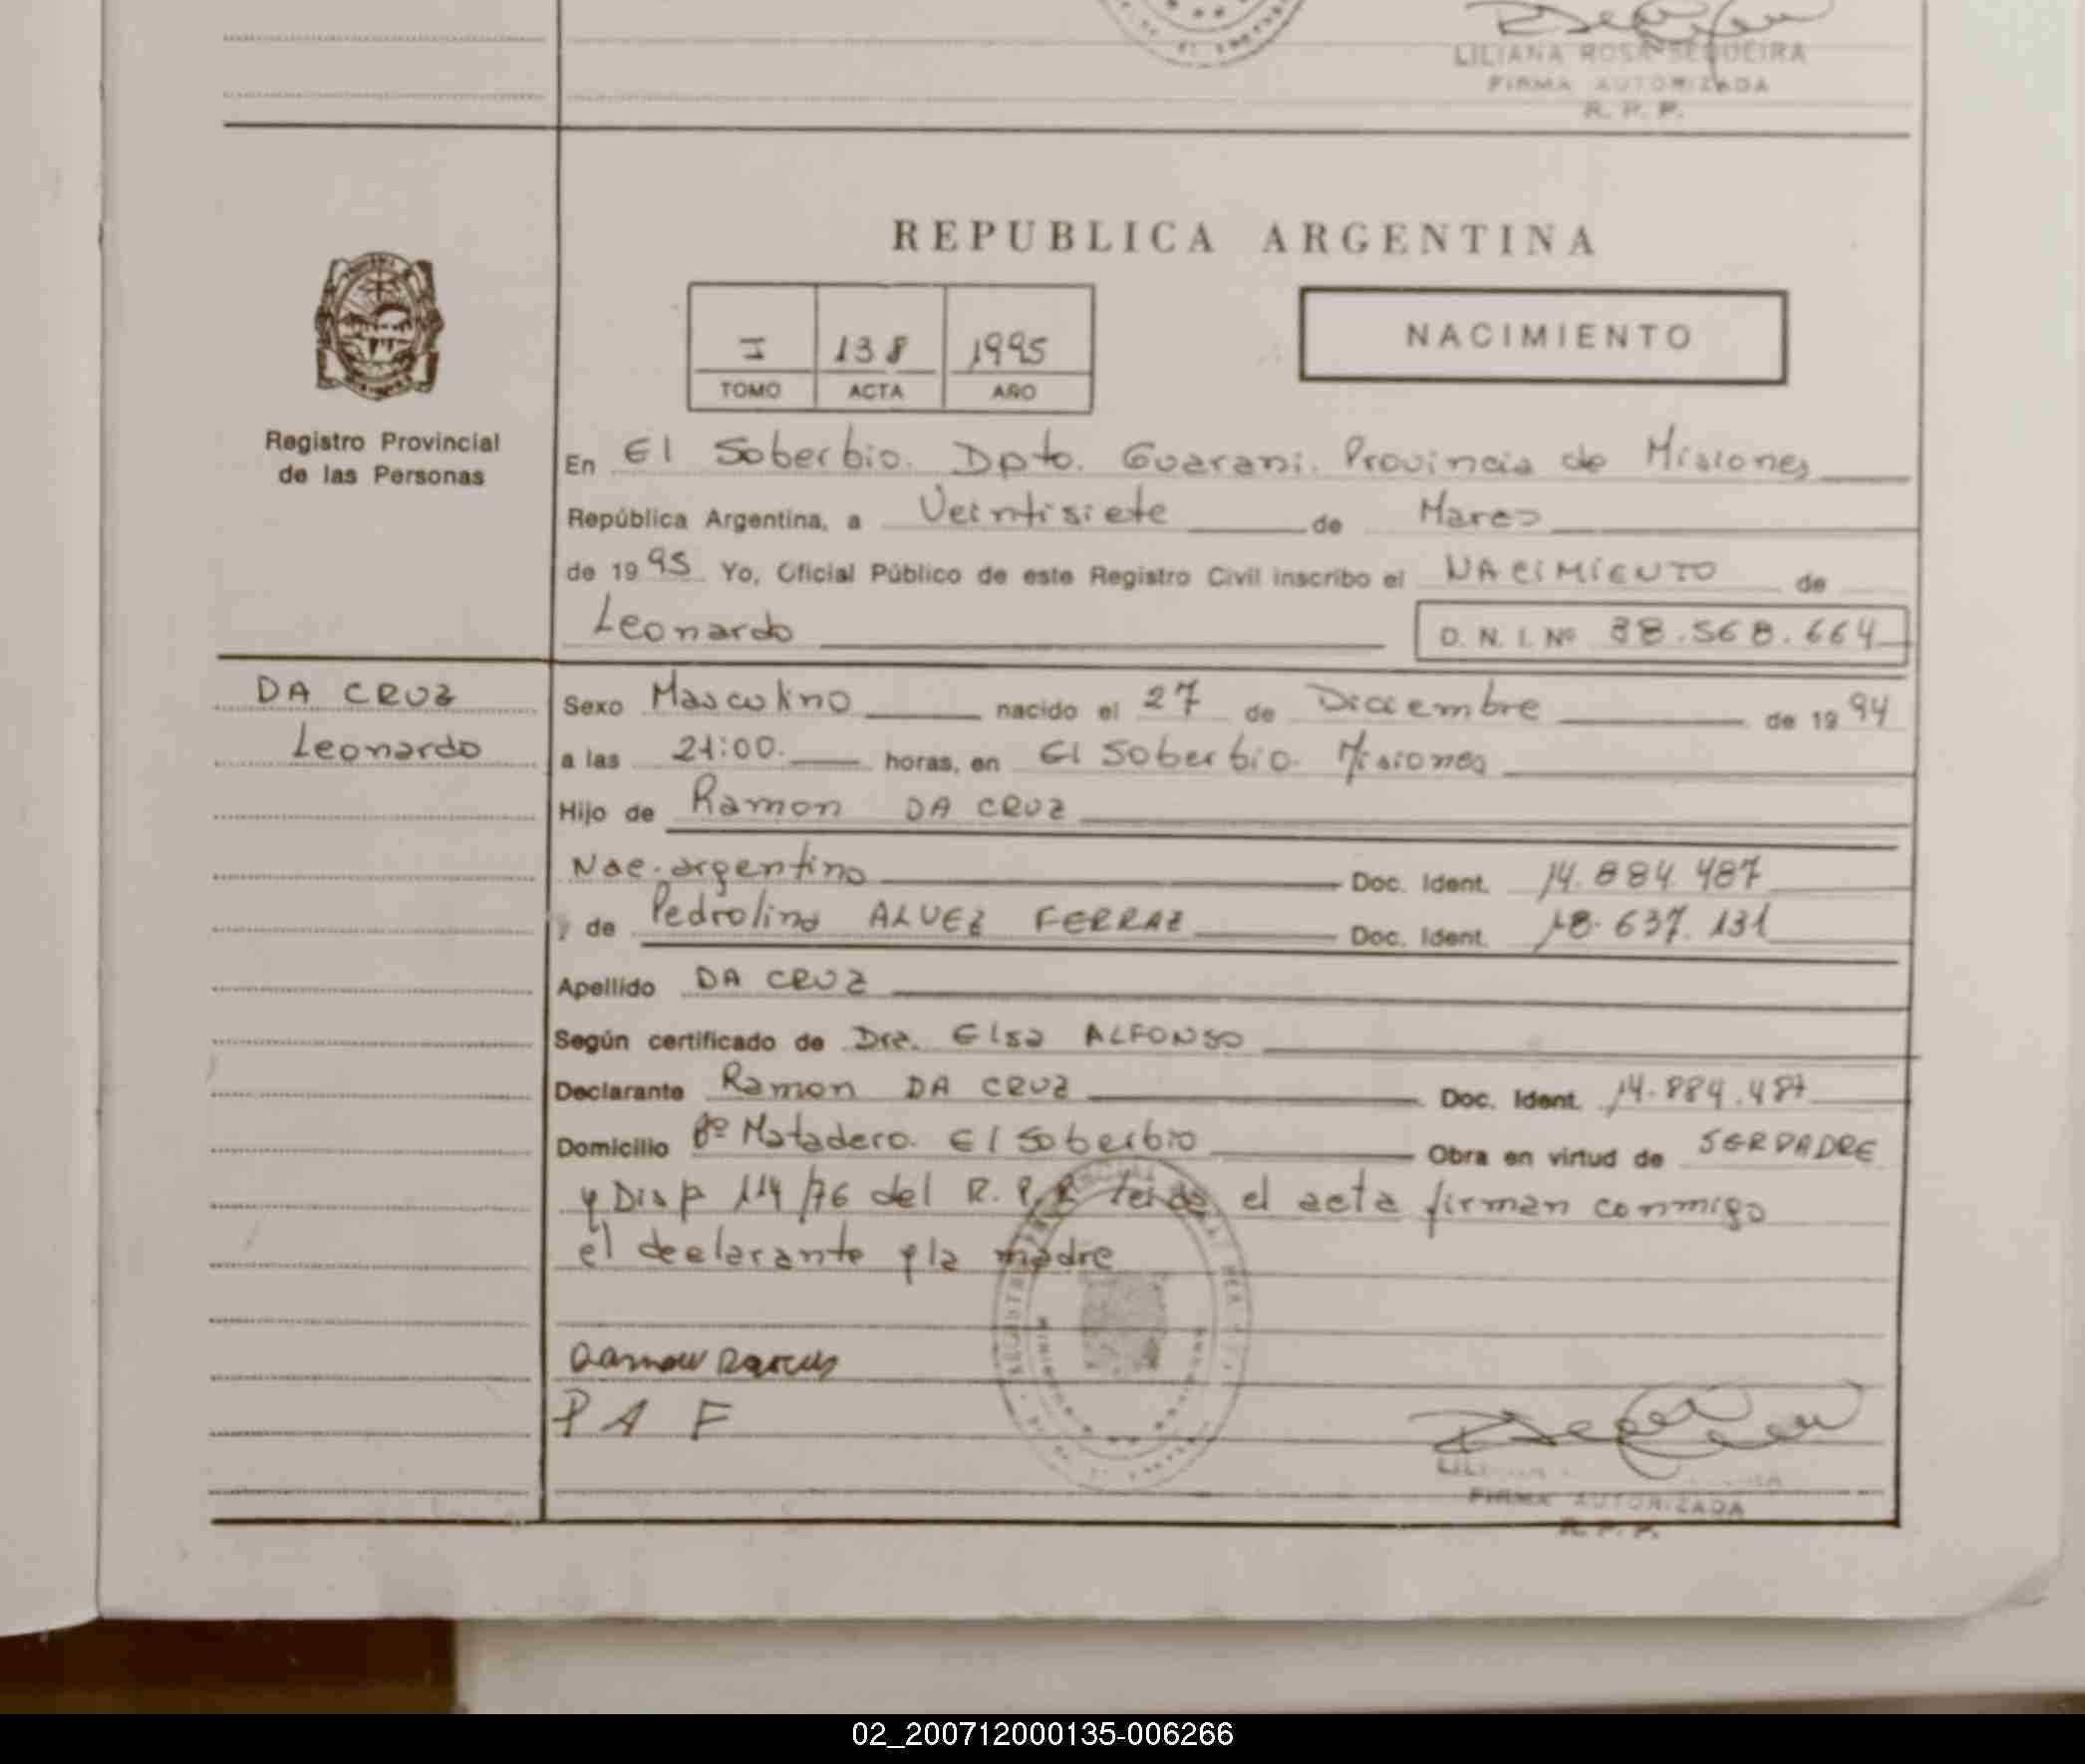 LILIANA ROSA SEQUEIRA
FIRMA AUTORIZADA
R. P. P.
REPUBLICA ARGENTINA
I 138 1995
TOMO ACTA AÑO
NACIMIENTO
Registro Provincial
de las Personas
En El Soberbio. Dpto. Guarani. Provincia de Misiones
República Argentina, a Veintisiete de Marzo
de 19 95 Yo, Oficial Público de este Registro Civil inscribo el NACIMIENTO de
Leonardo D. N. I. Nº 38.568.664
DA CRUZ
Leonardo
Sexo Masculino nacido el 27 de Diciembre de 19 94
a las 21:00. horas, en El Soberbio. Misiones
Hijo de Ramon DA CRUZ
Nac. argentino Doc. Ident. 14.884.487
y de Pedrolina ALVEZ FERRAZ Doc. Ident. 18.637.131
Apellido DA CRUZ
Según certificado de Dra. Elsa ALFONSO
Declarante Ramon DA CRUZ Doc. Ident. 14.884.487
Domicilio Bº Matadero. El Soberbio Obra en virtud de SER PADRE
y Disp 114/76 del R. P. P. el acta firman conmigo
el declarante y la madre
P A F
FIRMA AUTORIZADA
R. P. P.
02_200712000135-006266